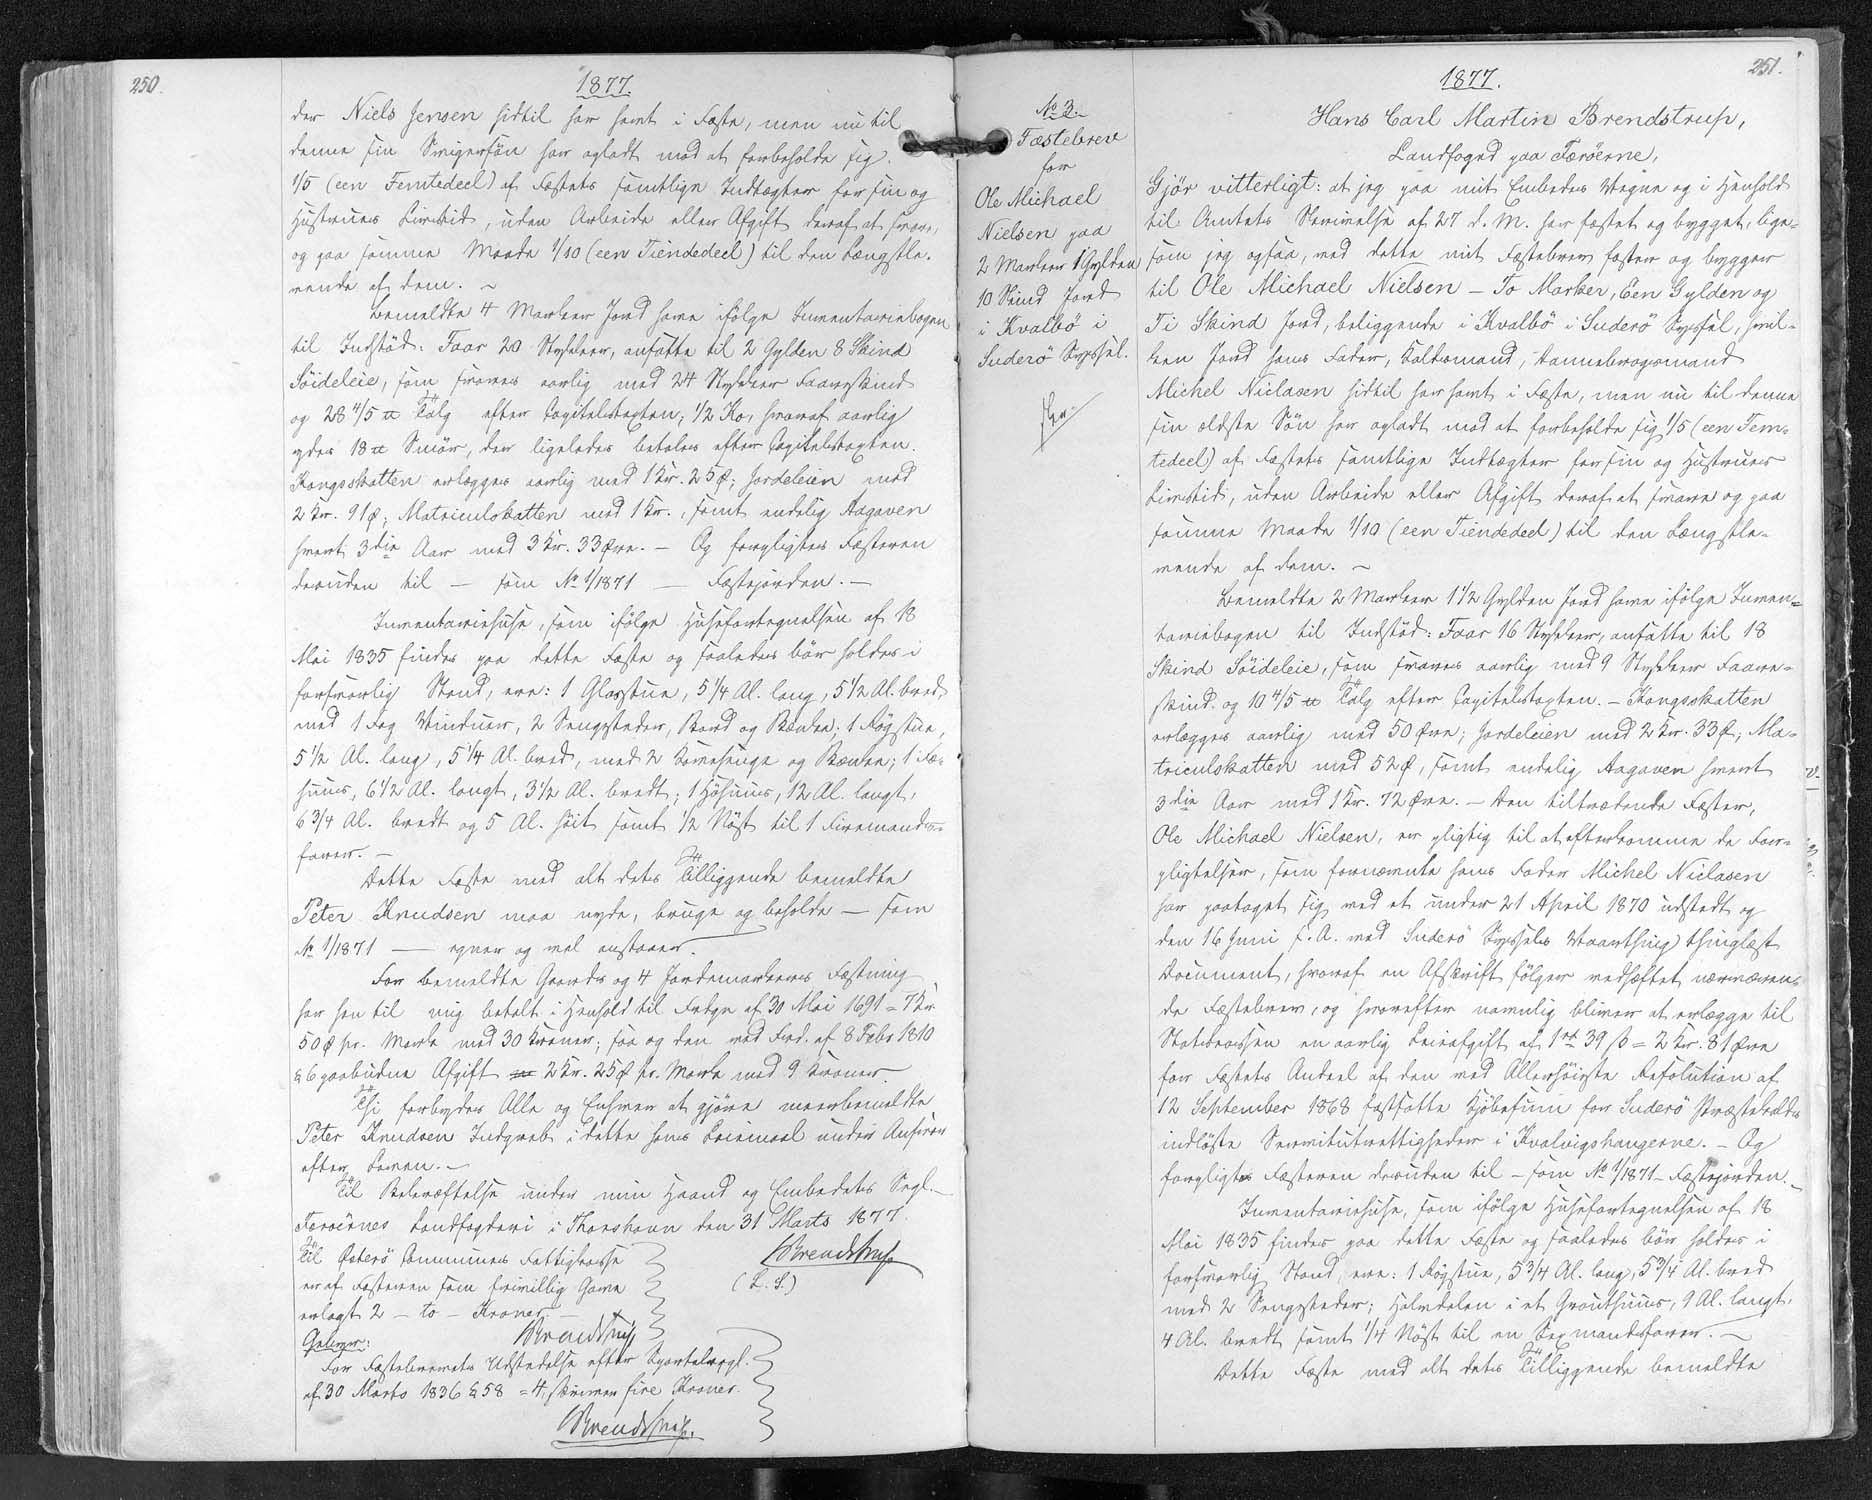 250.
1877.
der Niels Jensen hidtil har havt i Fæste, men nu til
denne sin Svigersøn har opladt mod at forbeholde sig
1/5 (een Femtedeel) af Fæstets samtlige Indtægter for sin og
Hustrues Livstid, uden Arbeide eller Afgift deraf at svare,
og paa samme Maade 1/10 (een Tiendedeel) til den Længstle-
vende af dem. ~
Bemeldte 4 Marker Jord have ifølge Inventariebogen
til Indstød: Faar 20 Stykker, ansatte til 2 Gylden 8 Skind
Söideleie, som svares aarlig med 24 Stykker Faareskind
og 28 4/5 ℔ Talg efter Capitelstaxten; 1/2 Ko, hvoraf aarlig
ydes 18 ℔ Smör, der ligeledes betales efter Capitelstaxten.
Kongsskatten erlægges aarlig med 1 Kr. 25 Ø; Jordeleien med
2 Kr. 91 Ø; Matriculskatten med 1 Kr., samt endelig Aagaven
hvert 3die Aar med 3 Kr. 33 Øre. — Og forpligtes Fæsteren
desuden til — som No 1/1871 — Fæstejorden. —
Inventariehuse, som ifølge Husefortegnelsen af 18
Mai 1835 findes paa dette Fæste og saaledes bör holdes i
forsvarlig Stand, ere: 1 Glasstue, 5 1/4 Al. lang, 5 1/2 Al. bred,
med 1 Fag Vinduer, 2 Sengesteder, Bord og Bænke; 1 Rögstue,
5 1/2 Al. lang, 5 1/4 Al. bred, med 2 Kovesenge og Bænke; 1 Fæ-
huus, 6 1/2 Al. langt, 3 1/2 Al. bredt; 1 Höhuus, 12 Al. langt,
6 3/4 Al. bredt og 5 Al. höit samt 1/2 Nöst til 1 Firemands-
farer. —
Dette Fæste med alt dets Tilliggende bemeldte
Peter Knudsen maa nyde, bruge og beholde — som
No 1/1871 — egner og vel anstaaer.
For bemeldte Gaards og 4 Jordemarkers Fæstning
har han til mig betalt i Henhold til Frdgn af 30 Mai 1691 = 7 Kr
50 Ø pr. Mark med 30 Kroner; saa og den ved Frd. af 8 Febr 1810
§ 6 paabudne Afgift 2 Kr. 25 Ø pr. Mark med 9 Kroner.
Thi forbydes Alle og Enhver at gjöre meerbemeldte
Peter Knudsen Indgreb i dette hans Leiemaal under Ansvar
efter Loven. —
Til Bekræftelse under min Haand og Embedets Segl. —
Færöernes Landfogderi i Thorshavn den 31 Marts 1877.
Brendstrup
(L. S.)
Til Österö Communes Fattigkasse
er af Fæsteren som frivillig Gave
erlagt 2 — to — Kroner. —
Brendstrup
Gebyr:
For Fæstebrevets Udstedelse efter Sportelregl.
af 30 Marts 1836 § 58 = 4, skriver fire Kroner.
Brendstrup.
251.
1877.
No 3.
Fæstebrev
for
Ole Michael
Nielsen paa
2 Marker 1 Gylden
10 Skind Jord
i Kvalbö i
Suderö Syssel.
Hans Carl Martin Brendstrup,
Landfoged paa Færöerne,
Gjör vitterligt: at jeg paa mit Embedes Vegne og i Henhold
til Amtets Skrivelse af 27 d. M. har fæstet og bygget, lige-
som jeg ogsaa, med dette mit Fæstebrev fæster og bygger
til Ole Michael Nielsen — To Marker, Een Gylden og
Ti Skind Jord, beliggende i Kvalbö i Suderö Syssel, hvil-
ken Jord hans Fader, Kaldsmand, Dannebrogsmand
Michel Niclasen hidtil har havt i Fæste, men nu til denne
sin ældste Sön har opladt mod at forbeholde sig 1/5 (een Fem-
tedeel) af Fæstets samtlige Indtægter for sin og Hustrues
Livstid, uden Arbeide eller Afgift deraf at svare og paa
samme Maade 1/10 (een Tiendedeel) til den Længstle-
vende af dem. ~
Bemeldte 2 Marker 1 1/2 Gylden Jord have ifølge Inven-
tariebogen til Indstöd: Faar 16 Stykker, ansatte til 18
Skind Söideleie, som svares aarlig med 9 Stykker Faare-
skind og 10 4/5 ℔ Talg efter Capitelstaxten. — Kongsskatten
erlægges aarlig med 50 Øre; Jordeleien med 2 Kr. 33 Ø; Ma-
triculskatten med 52 Ø, samt endelig Aagaven hvert
3die Aar med 1 Kr. 72 Øre. — Den tiltrædende Fæster,
Ole Michael Nielsen, er pligtig til at efterkomme de For-
pligtelser, som fornævnte hans Fader Michel Niclasen
har paataget sig ved et under 21 April 1870 udstedt og
den 16 Juni s. A. ved Suderö Syssels Vaarthing thinglæst
Document, hvoraf en Afskrift fölger vedhæftet nærværen-
de Fæstebrev, og hvorefter navnlig bliver at erlægge til
Statskassen en aarlig Leieafgift af 1 rd 39 ß = 2 Kr. 81 Øre
for Fæstets Andeel af den ved Allerhöieste Resolution af
12 September 1868 fastsatte Kjöbesum for Suderö Præstekalds
indlöste Servitutrettigheder i Kvalvigshaugerne. — Og
forpligtes Fæsteren desuden til — som No 1/1871 — Fæstejorden. —
Inventariehuse, som ifölge Husefortegnelsen af 18
Mai 1835 findes paa dette Fæste og saaledes bör holdes i
forsvarlig Stand, ere: 1 Rögstue, 5 3/4 Al. lang, 5 3/4 Al. bred
med 2 Sengesteder; Halvdelen i et Grouthuus, 9 Al. langt,
4 Al. bredt samt 1/4 Nöst til en Sexmandsfarer. —
Dette Fæste med alt dets Tilliggende bemeldte